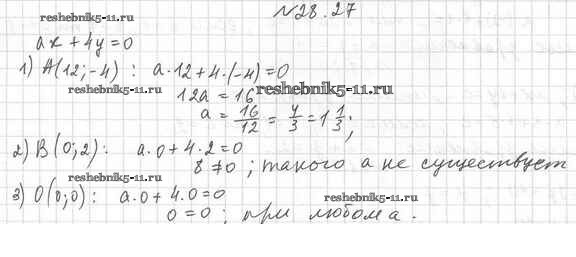 №28.27
reshebnik5-11.ru
ax + 4y = 0
1) A(12; -4) : a·12 + 4·(-4) = 0
reshebnik5-11.ru
12a = 16
reshebnik5-11.ru
a = 16/12 = 4/3 = 1 1/3;
2) B(0; 2) : a·0 + 4·2 = 0
8 ≠ 0 ; такого a не существует
reshebnik5-11.ru
3) O(0;0) : a·0 + 4·0 = 0
reshebnik5-11.ru
0 = 0 ; при любом a.